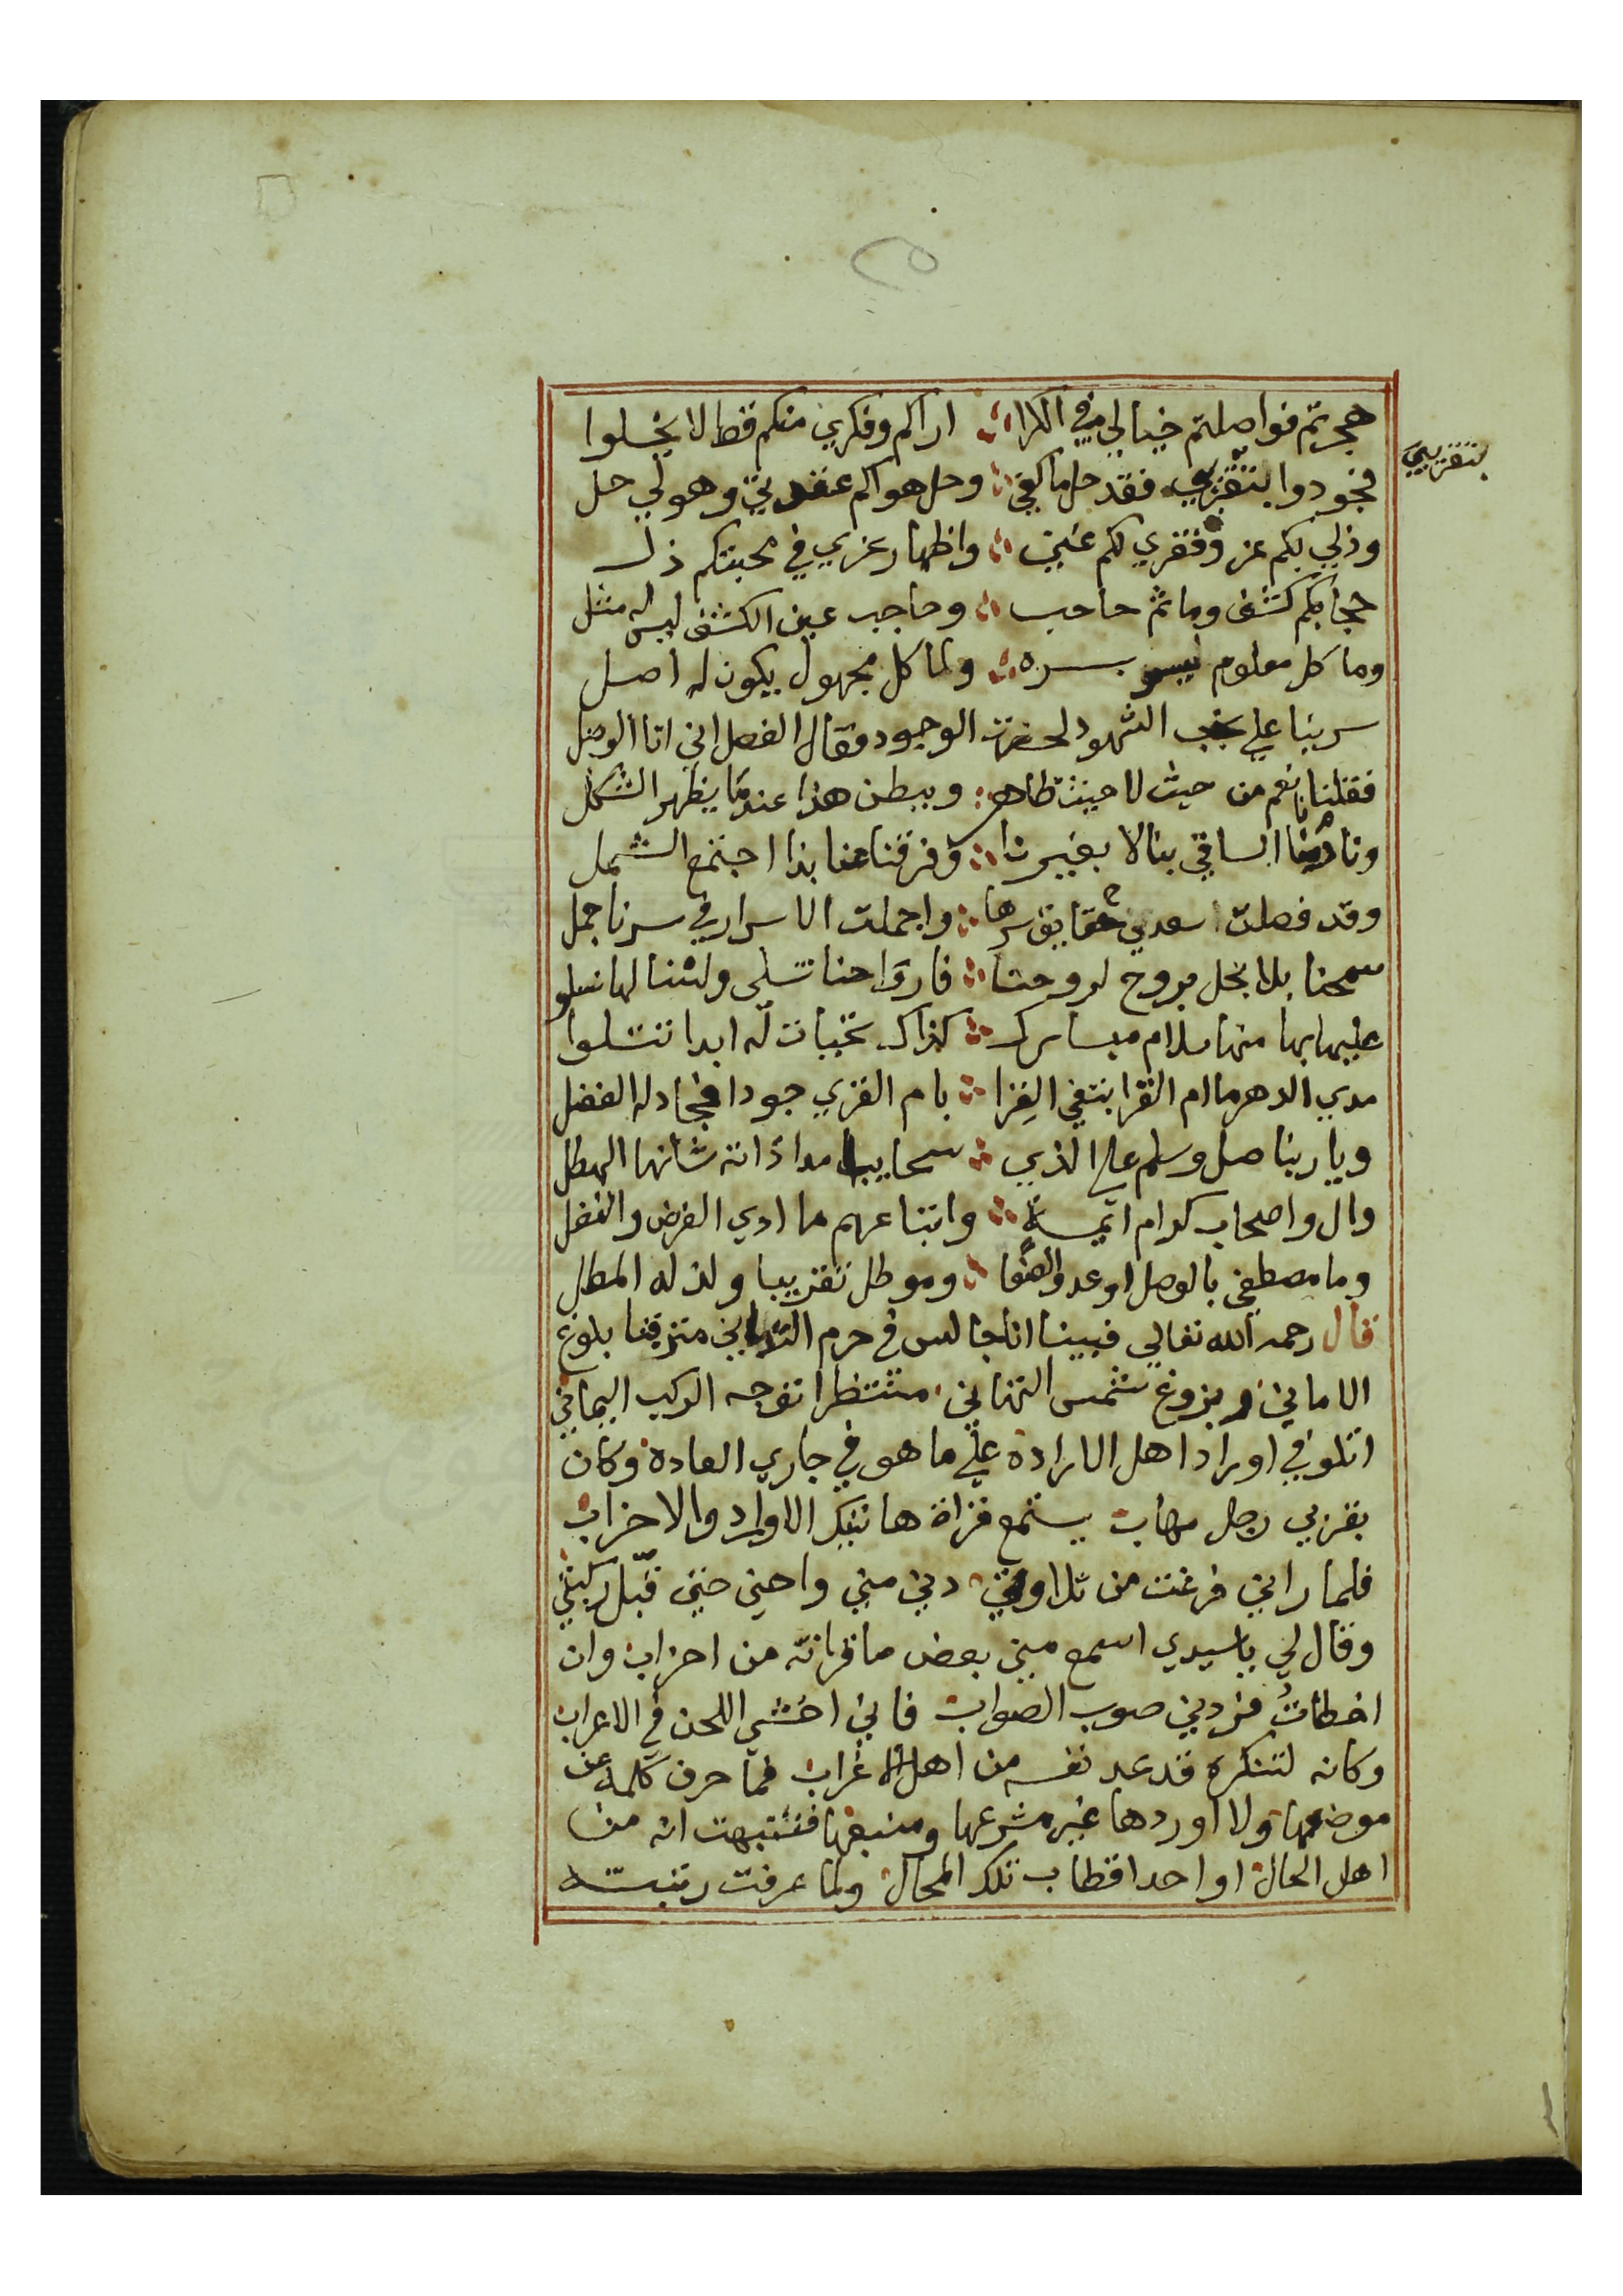 هجرتم فواصلتم خيالي في الكرا ؞ اراكم وفكري منكم قط لا يخلوا
فجودوا بتقريبي فقد حل ما كفى ؞ وحل هواكم عقدتي وهو لي حل
بتقريبي
وذلي بكم عز وفقري لكم غني ؞ واظهار عزي في محبتكم ذل
حجابكم كشف وما ثم حاجب ؞ وحاجب عين الكشف ليس له مثل
وما كل معلوم يبسره ؞ ولا كل مجهول يكون له اصل
سرينا علي نجب الشهود لحضرت الوجود فقال الفصل اني انا الوصل
فقلنا نعم من حيث لا حيث ظاهر ؞ ويبطن هذا عندما يظهر الشكل
ونادمنا الساقي بنا لا بغيرنا ؞ وفرقنا عنا بذا اجتمع الشمل
وقد فصلت سعدي حقايق سرها ؞ واجملت الاسرار في سرنا جمل
سمحنا بلا بخل بروح لروحنا ؞ فارواحنا تسلى ولسنا لها نسلو
عليها بها منها سلام مبارك ؞ كذاك تحيات له ابدا تتلوا
مدي الدهر ما ام القرا بنتفي القرا ؞ بام القري جودا فجاد له الفضل
ويا ربنا صل وسلم على الذي ؞ سحايب امداداته شانها الهطل
وال واصحاب كرام ايمة ؞ واتباعهم ما ادي الفرض والنفل
وما مصطفى بالوصل اوعد والصفا ؞ وموطل تقريبا ولذ له المطل
قال رحمه الله تعالي فبينا انا جالس في حرم التداني مترقبا بلوغ
الاماني وبزوغ شمس التهاني منتظرا توجه الركب اليماني
اتلو في اوراد اهل الارادة علي ما هو في جاري العادة وكان
بقربي رجل مهاب يستمع قراة هاتيك الاوراد والاحزاب
فلما راني فرغت من تلاوتي دني مني واحني حتى قبل ركبتي
وقال لي يا سيدي اسمع مني بعض ما قراته من احزاب وان
اخطات فردني صوب الصواب فاني اخشي اللحن في الاعراب
وكانه لتنكره قد عد نفسه من اهل الاغراب فما حرف كلمة عن
موضعها ولا اوردها غير مشرعها ومنبعها فتنبهت انه من
اهل الحال او احد اقطاب تلك المحال ولما عرفت رتبته